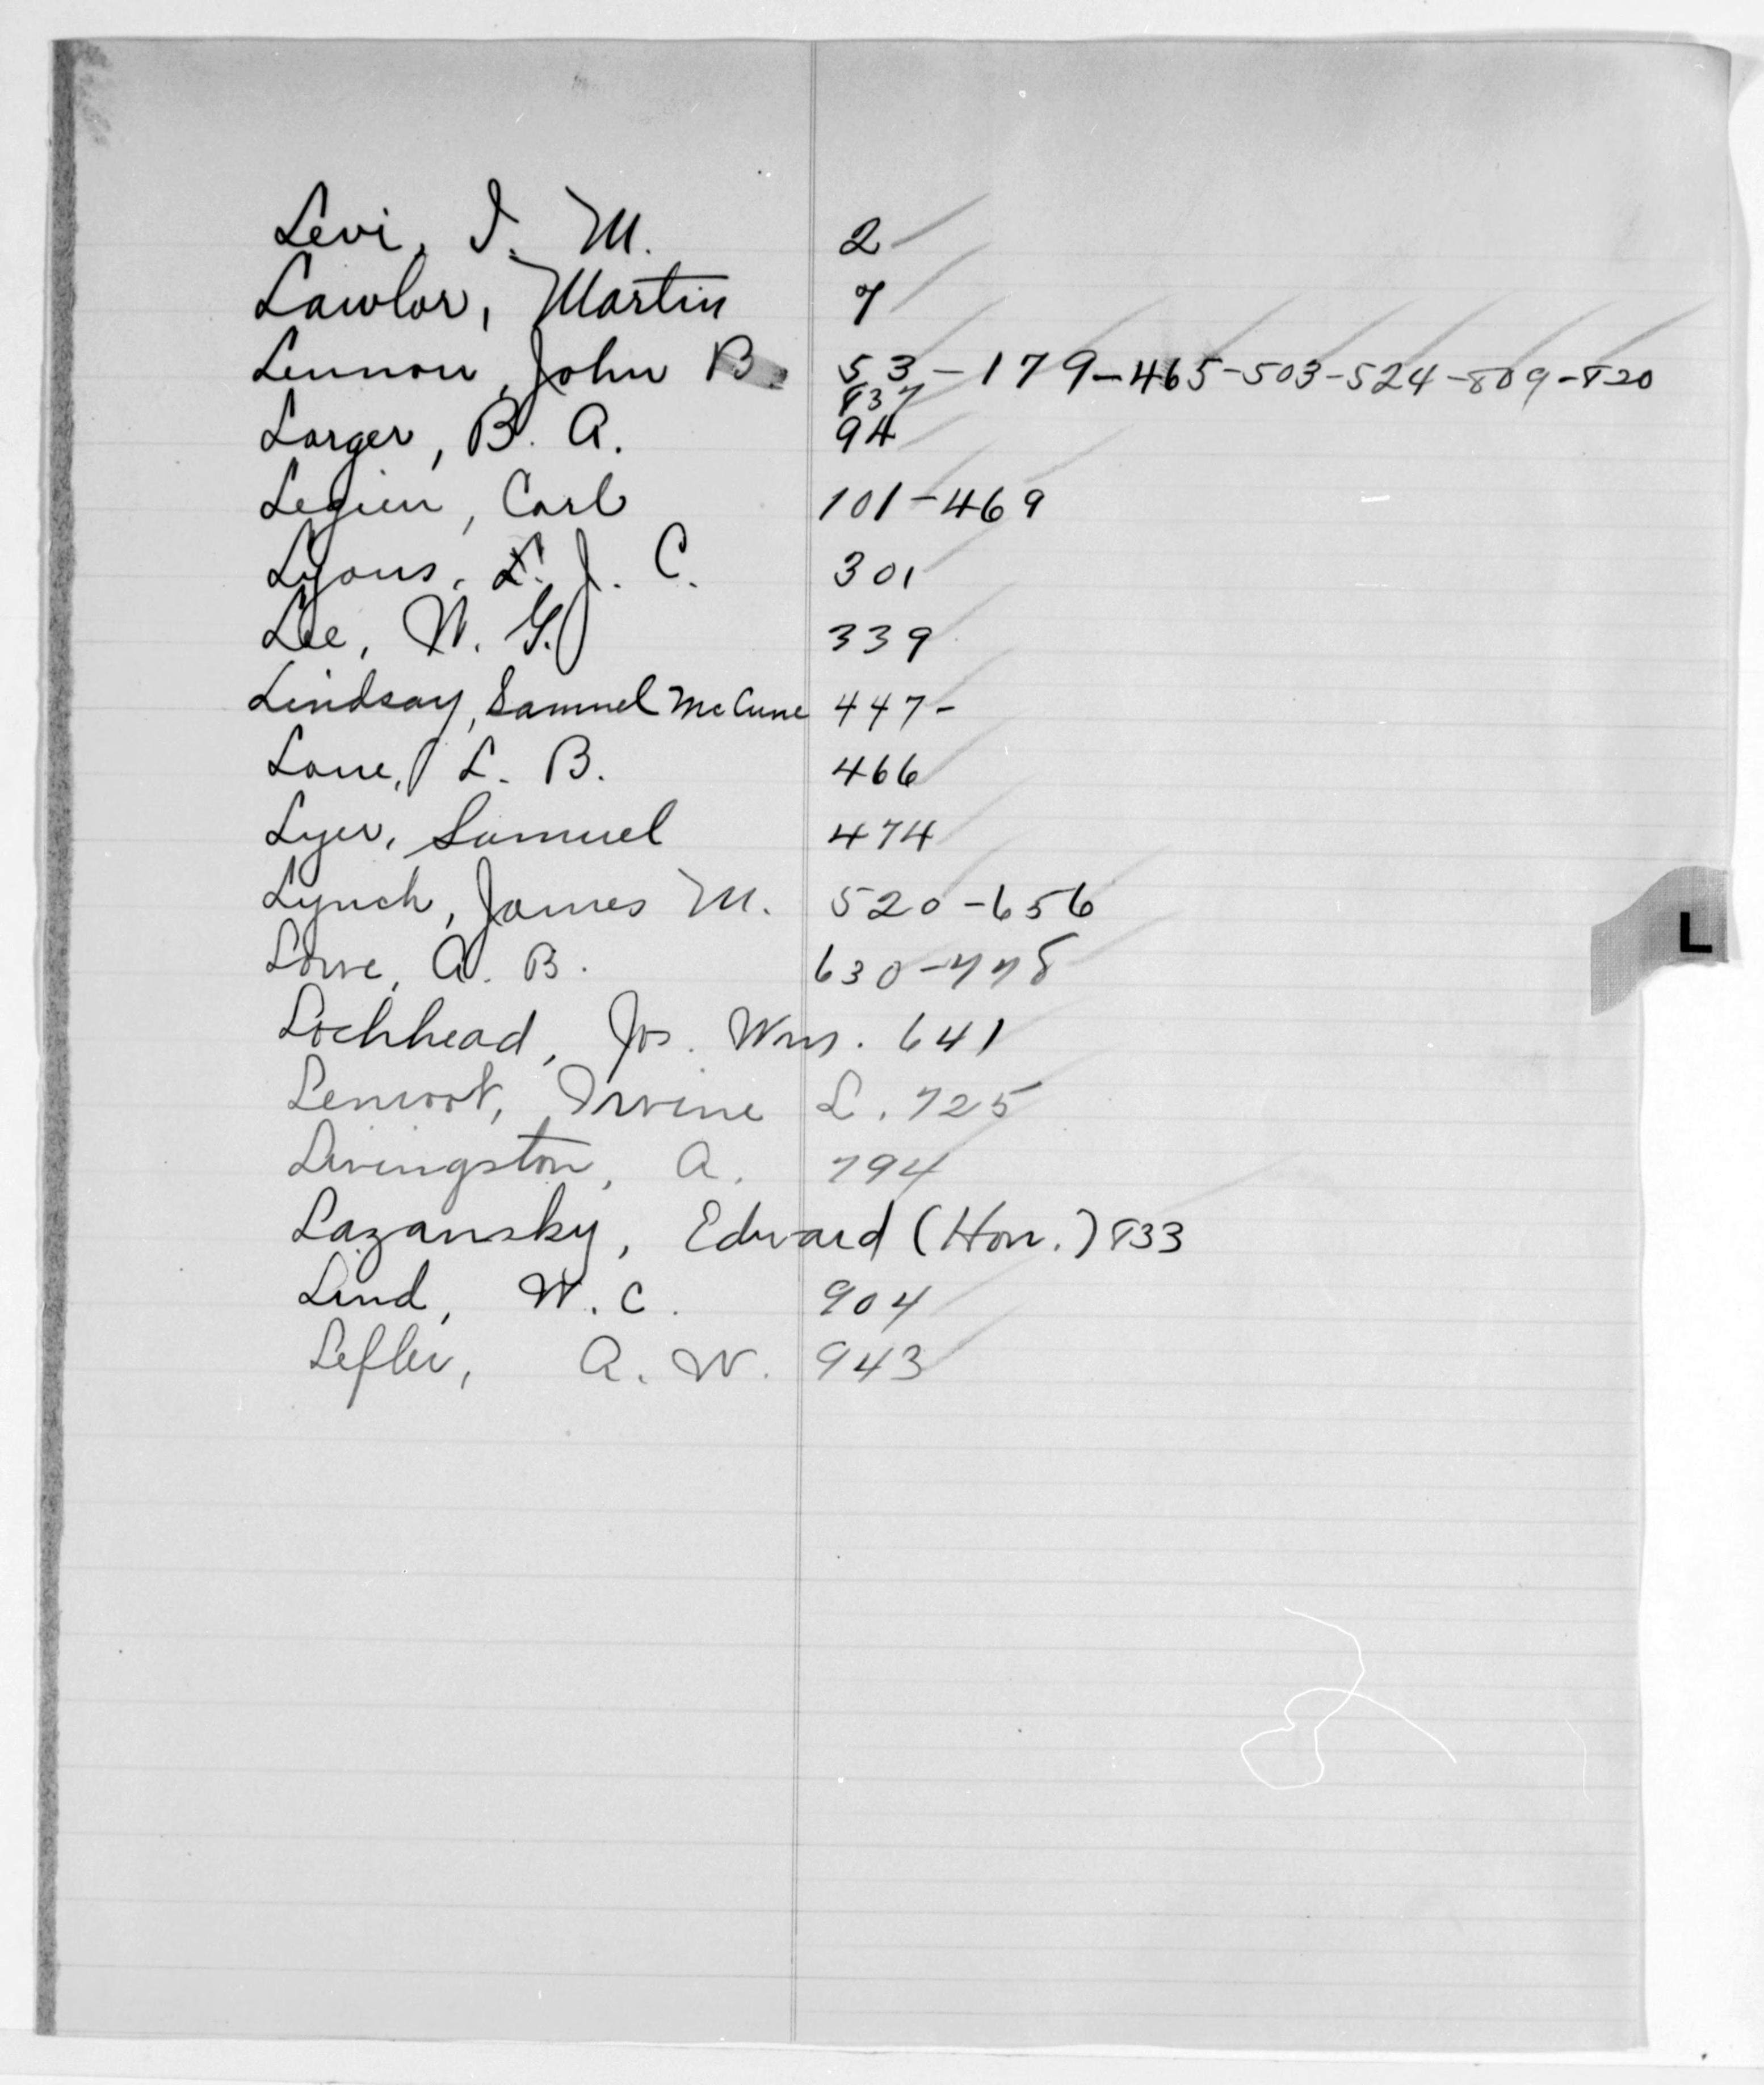 Levi, I. M. 2
Lawlor, Martin 7
Lennon, John B. 53-179-465-503-524-809-820
837
Larger, B. A. 94
Legien, Carl 101-469
Lyons, J. C. 301
Lee, W. G. 339
Lindsay, Samuel McCune 447-
Lane, L. B. 466
Lyer, Samuel 474
Lynch, James M. 520-656
Lowe, A. B. 630-778
Lochhead, Jos. Wm. 641
Lenroot, Irvine L. 725
Livingston, A. 794
Lazansky, Edward (Hon.) 833
Lind, W. C. 904
Lefler, A. W. 943
L